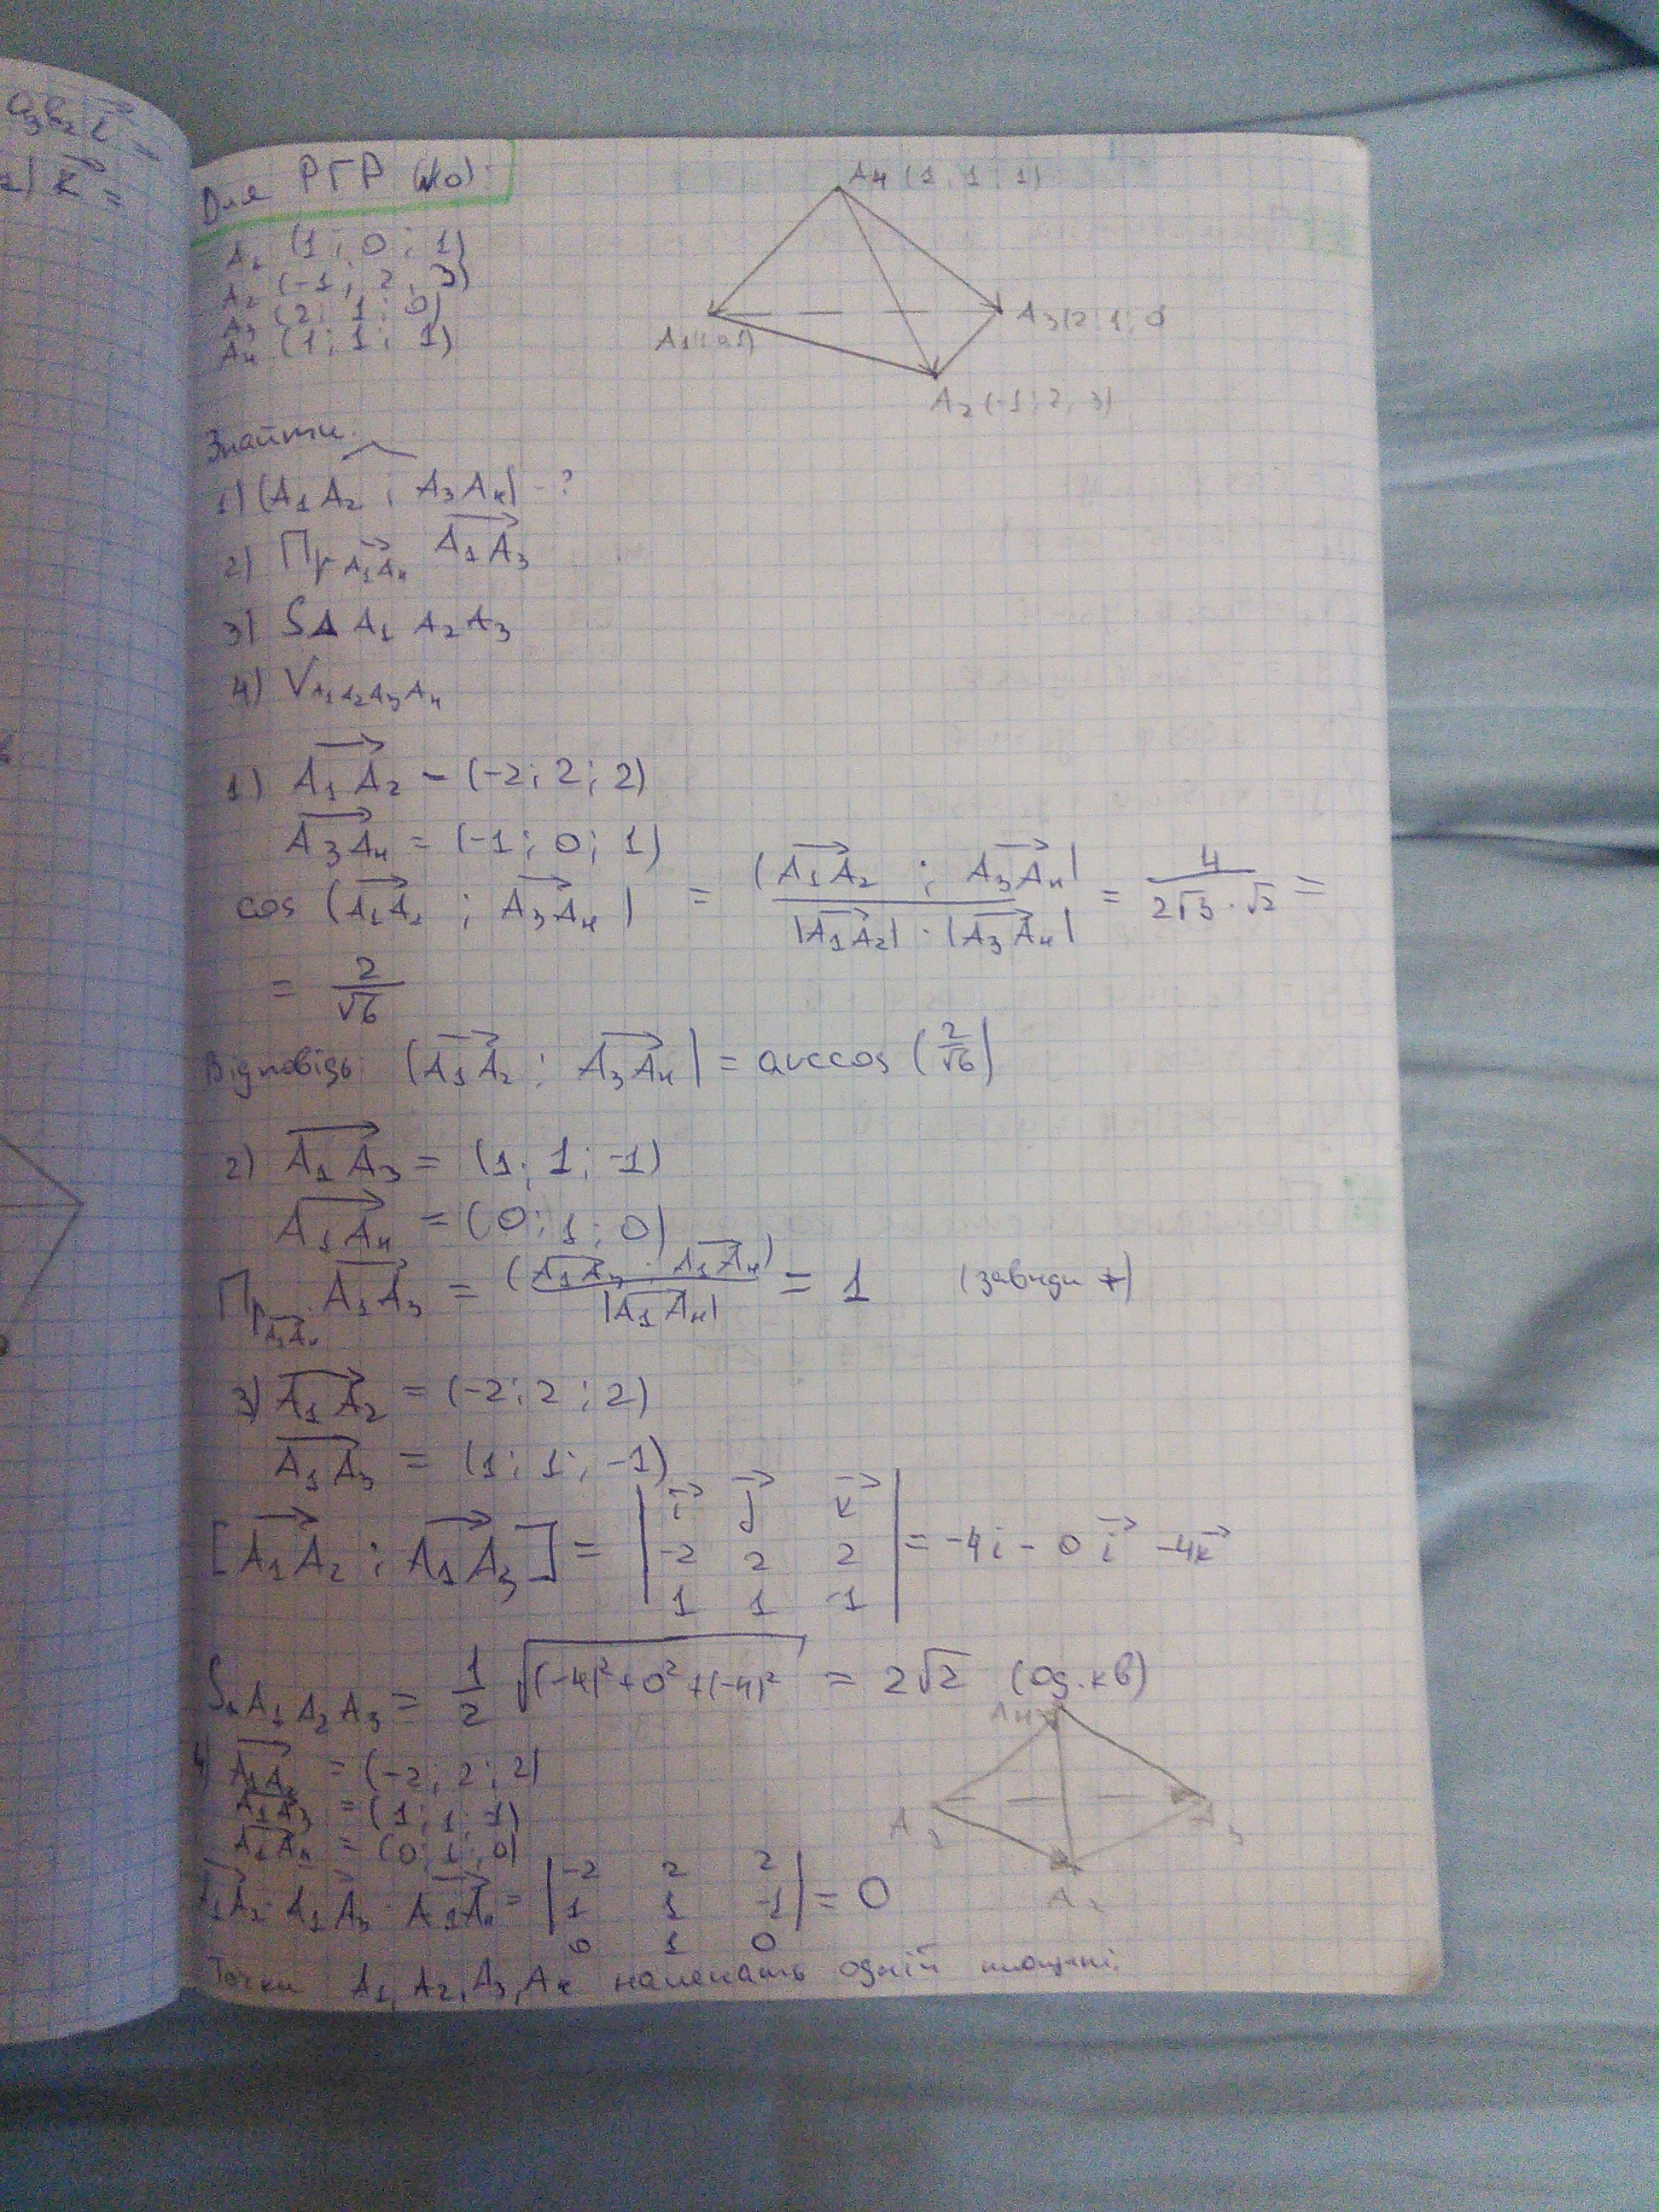 Для РГР (№0).
A₁ (1; 0; 1)
A₂ (-1; 2; 3)
A₃ (2; 1; 0)
A₄ (1; 1; 1)
A₄ (1; 1; 1)
A₁(1 0 1)
A₃(2; 1; 0
A₂(-1; 2; 3)
Знайти:
1) (A₁A₂ ; A₃A₄) - ?
2) Пр A₁A₄ A₁A₃
3) S∆ A₁ A₂ A₃
4) V A₁A₂A₃A₄
1) A₁A₂ - (-2; 2; 2)
A₃A₄ = (-1; 0; 1)
cos (A₁A₂ ; A₃A₄) = (A₁A₂ ; A₃A₄) / |A₁A₂| · |A₃A₄| = 4 / 2√3 · √2 =
= 2/√6
Відповідь: (A₁A₂ ; A₃A₄) = arccos (2/√6)
2) A₁A₃ = (1; 1; -1)
A₁A₄ = (0; 1; 0)
Пр A₁A₄ A₁A₃ = (A₁A₃ · A₁A₄) / |A₁A₄| = 1 (завжди +)
3) A₁A₂ = (-2; 2; 2)
A₁A₃ = (1; 1; -1)
[A₁A₂ ; A₁A₃] = | i j k
-2 2 2
1 1 -1 | = -4i - 0i - 4k
S∆ A₁ A₂ A₃ = 1/2 √(-4)²+0²+(-4)² = 2√2 (од.кв)
4) A₁A₂ = (-2; 2; 2)
A₁A₃ = (1; 1; -1)
A₁A₄ = (0; 1; 0)
A₄
A₃
A₂
A₁A₂ · A₁A₃ · A₁A₄ = | -2 2 2
1 1 -1
0 1 0 | = 0
Точки A₁, A₂, A₃, A₄ належать одній площині.